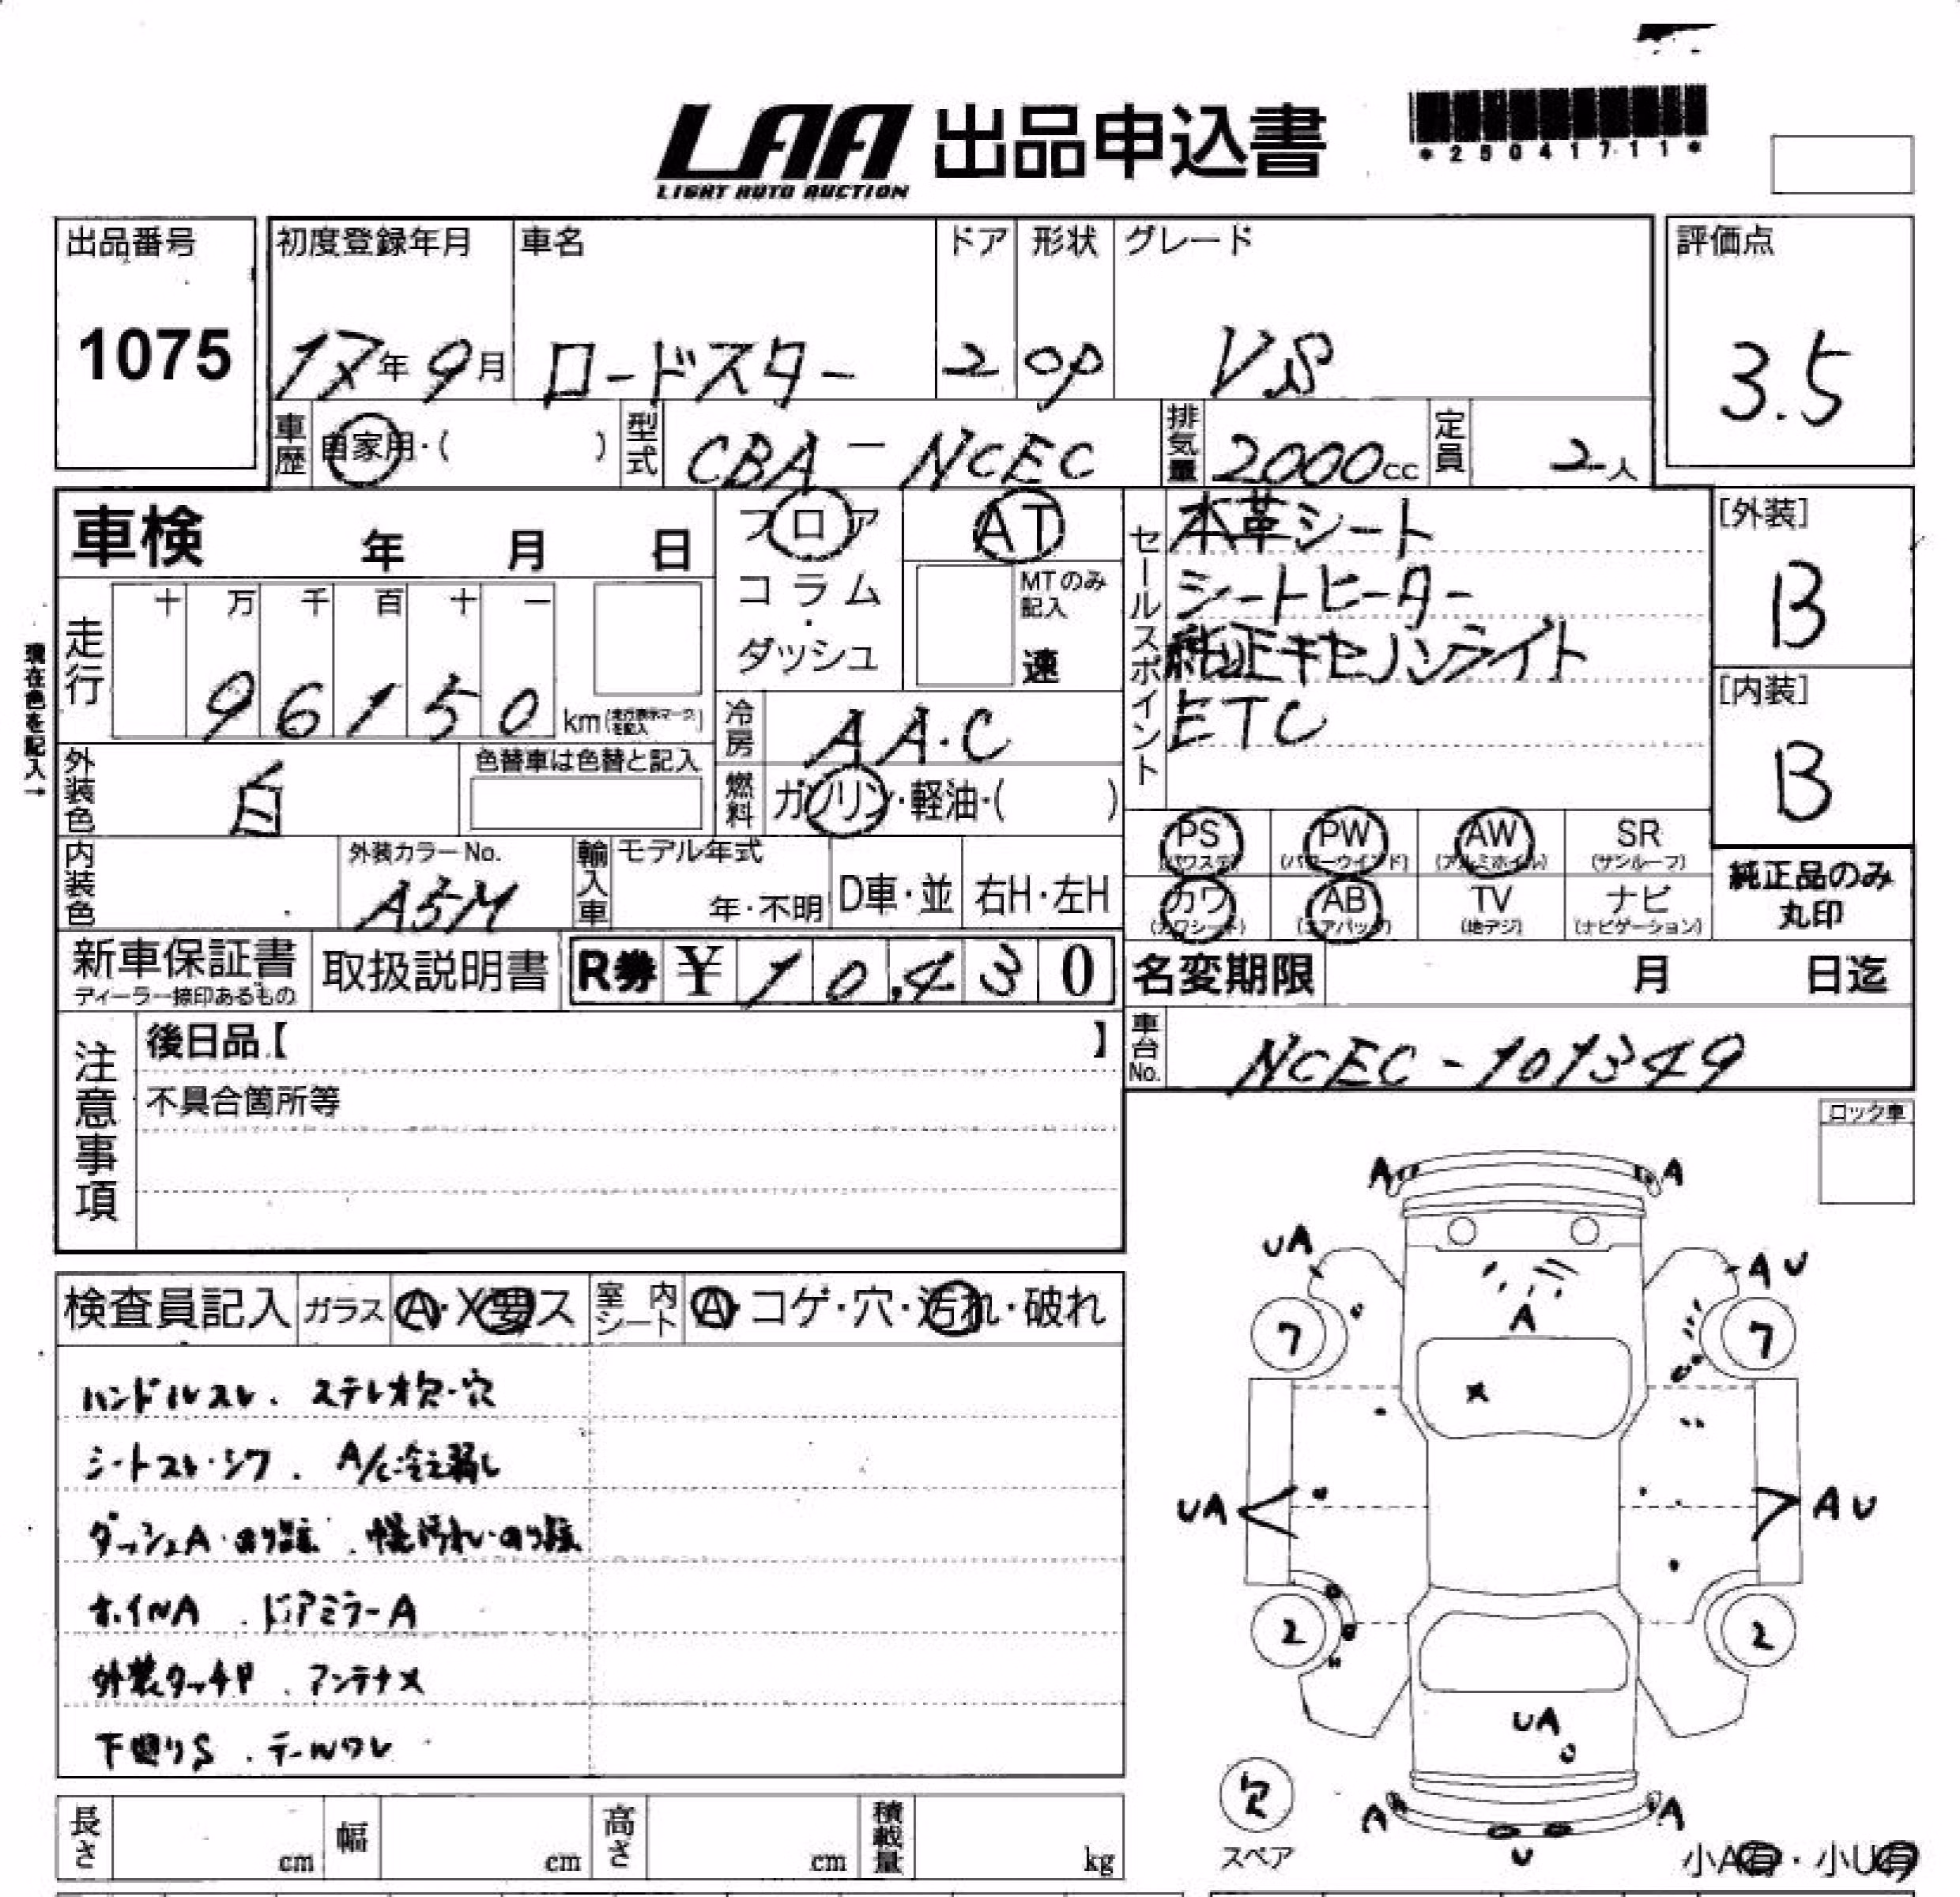 LAA 出品申込書
LIGHT AUTO AUCTION
*25041711*
出品番号
1075
初度登録年月
17年9月
車名
ロードスター
ドア
2
形状
OP
グレード
VS
評価点
3.5
車歴 自家用・( )
型式 CBA-NCEC
排気量 2000cc
定員 2人
車検 年 月 日
フロア
コラム
・
ダッシュ
AT
MTのみ記入
速
セールスポイント
本革シート
シートヒーター
純正キセノンライト
ETC
[外装]
B
[内装]
B
現在色を記入→
走行
十 万 千 百 十 一
9 6 1 5 0 km(走行表示マークを記入)
冷房 AA・C
燃料 ガソリン・軽油・( )
外装色 白
色替車は色替と記入
内装色
外装カラーNo.
A5M
輸入車
モデル年式
年・不明
D車・並
右H・左H
PS (パワステ)
PW (パワーウインド)
AW (アルミホイル)
SR (サンルーフ)
カワ (カワシート)
AB (エアバッグ)
TV (地デジ)
ナビ (ナビゲーション)
純正品のみ
丸印
新車保証書
ディーラー捺印あるもの
取扱説明書
R券 ¥ 10,430
名変期限 月 日迄
車台No. NCEC-101349
注意事項
後日品【 】
不具合箇所等
ロック車
検査員記入
ガラス A・X要ス
室内シート A・コゲ・穴・汚れ・破れ
ハンドルスレ. ステレオ欠・穴
シートスレ・シワ. A/C冷え弱し
ダッシュA・のり跡. 幌汚れ・のり跡
ホイルA. ドアミラーA
外装タッチP. アンテナX
下廻りS. テールワレ
A A
UA AU
A
7 7
X
UA AU
2 2
UA
A A
U
欠
スペア
小A有・小U有
長さ cm
幅 cm
高さ cm
積載量 kg